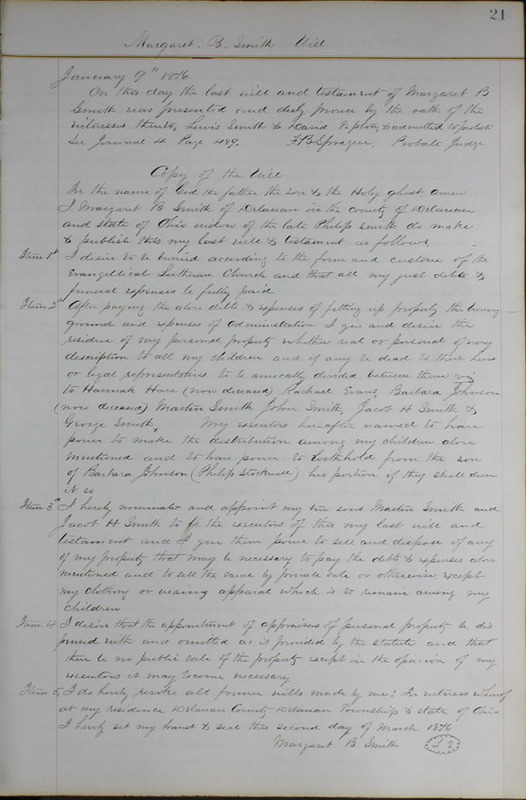 21
Margaret. B. Smith Will
January 9th 1876
On this day the last will and testament of Margaret B
Smith was presented and duly proven by the oath of the
witnesses thereto, Lewis Smith & David & admitted to probate
See Journal 4 Page 489. F.B. Sprague. Probate Judge
Copy of the Will
In the name of God the father the son & the Holy ghost, amen
I Margaret B Smith of Delaware in the county of Delaware
and state of Ohio widow of the late Philip Smith do make
& publish this my last will & testament as follows,
Item 1st I desire to be buried according to the form and custom of the
Evangellical Lutheran Church and that all my just debts &
funeral expenses be fully paid
Item 2nd After paying the above debts & expenses of fitting up properly the burying
ground and expenses of administration I give and desire the
residue of my personal property whether real or personal of every
description to all my children and if any be dead to their heirs
or legal representatives to be amically divided between them viz
to Hannah (now deceased) Rachael Evans, Barbara Johnson
(now deceased) Martin Smith John Smith, Jacob H Smith &
George Smith, My executors hereafter named to have
power to make the distribution among my children above
mentioned and to have power to withhold from the son
of Barbara Johnson (Philip Stockwell) his portion if they shall deem
it so
Item 3d I hereby nominate and appoint my two sons Martin Smith and
Jacob H Smith to be the executors of this my last will and
testament and I give them power to sell and dispose of any
of my property that may be necessary to pay the debts & expenses above
mentioned and to sell the same by private sale or otherwise except
my clothing or wearing apparal which is to remain among my
children
Item 4 I desire that the appointment of appraisers of personal property be dis
pensed with and omitted as is provided by the statute and that
there be no public sale of the property except in the opinion of my
executors it may become necessary
Item 5 I do hereby revoke all former wills made by me; In witness whereof
at my residence Delaware County Delaware Township & state of Ohio
I hereby set my hand & seal this second day of March 1876
Margaret B Smith